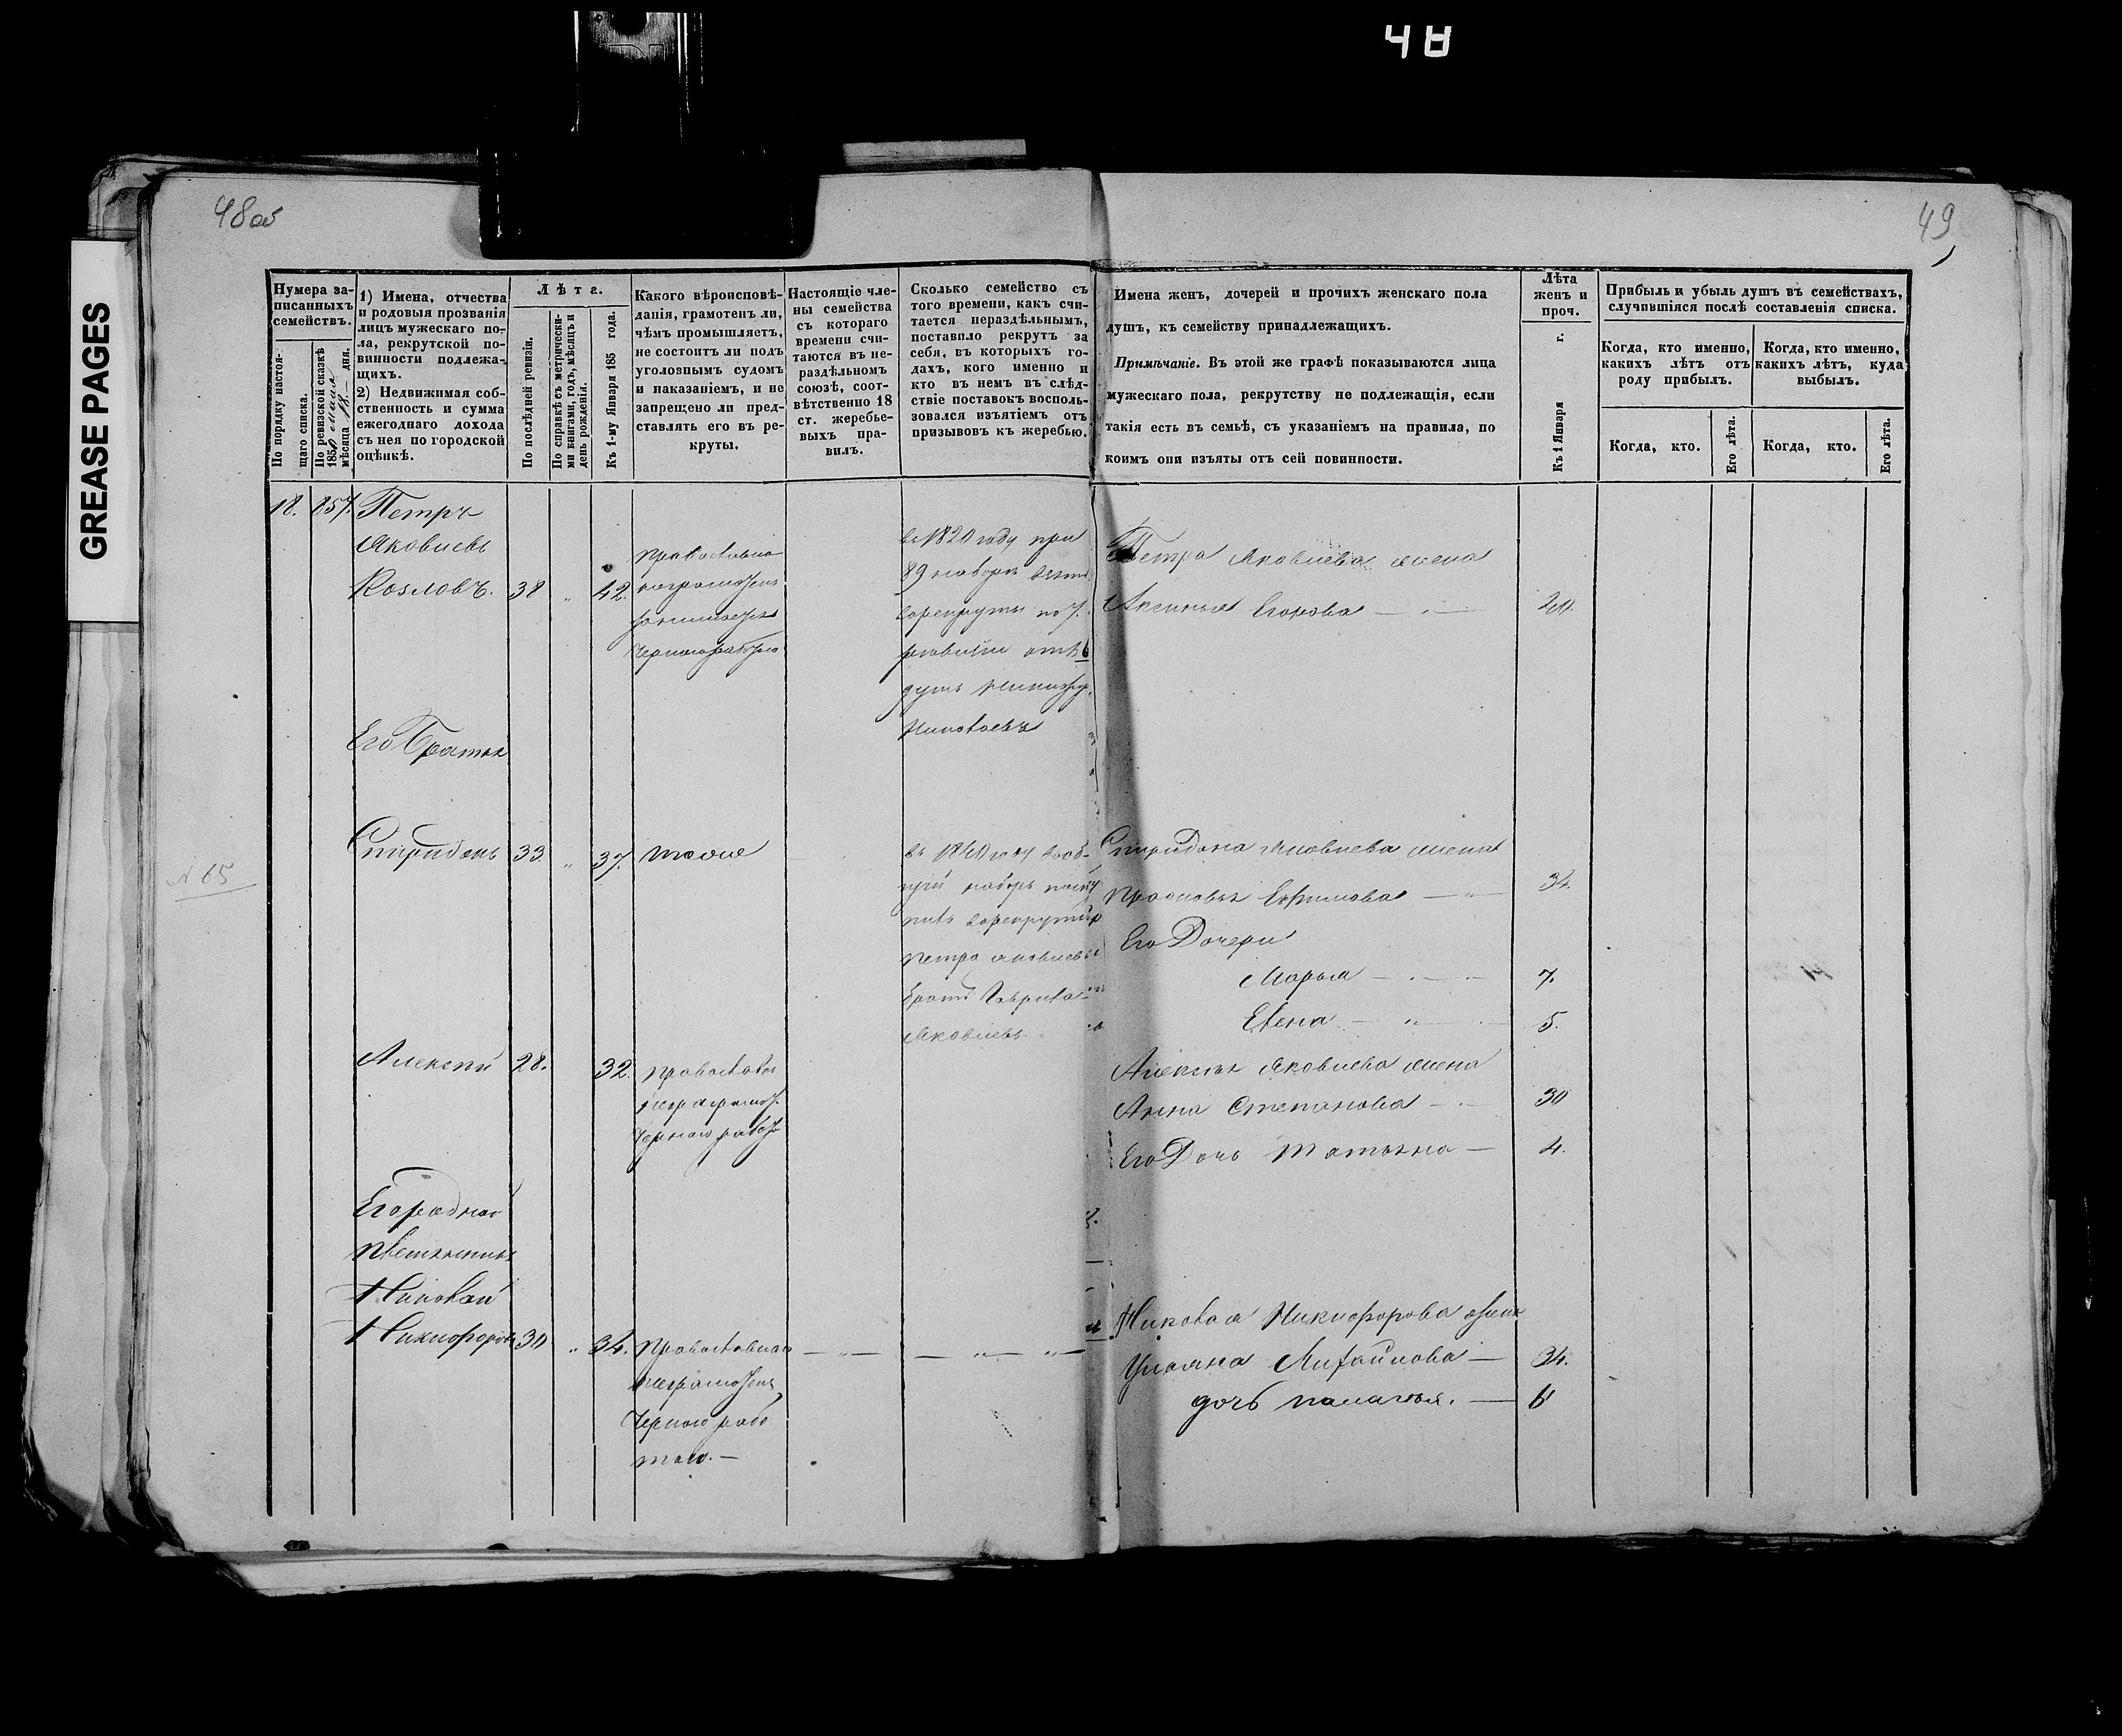 48
48об
49
GREASE PAGES
Нумера записанныхъ семействъ.
По порядку настоящаго списка.
По ревизской сказкѣ 1850 мѣсяца 18 дня.
1) Имена, отчества
и родовыя прозванія
лицъ мужескаго по-
ла, рекрутской по-
винности подлежа-
щихъ.
2) Недвижимая соб-
ственность и сумма
ежегоднаго дохода
съ нея по городской
оцѣнкѣ.
Лѣтъ.
По послѣдней ревизіи.
По справкѣ съ метрически-
ми книгами, годъ, мѣсяцъ и
день рожденія.
Къ 1-му Января 185 года.
Какого вѣроисповѣ-
данія, грамотенъ ли,
чѣмъ промышляетъ,
не состоитъ ли подъ
уголовнымъ судомъ
и наказаніемъ, и не
запрещено ли пред-
ставлять его въ ре-
круты.
Настоящіе чле-
ны семейства
съ котораго
времени счи-
таются въ не-
раздѣльномъ
союзѣ, соот-
вѣтственно 18
ст. жеребье-
выхъ пра-
вилъ.
Сколько семейство съ
того времени, какъ счи-
тается нераздѣльнымъ,
поставило рекрутъ за
себя, въ которыхъ го-
дахъ, кого именно и
кто въ немъ въ слѣд-
ствіе поставокъ восполь-
зовался изъятіемъ отъ
призывовъ къ жеребью.
Имена женъ, дочерей и прочихъ женскаго пола
душъ, къ семейству принадлежащихъ.
Примѣчаніе. Въ этой же графѣ показываются лица
мужескаго пола, рекрутству не подлежащія, если
такія есть въ семьѣ, съ указаніемъ на правила, по
коимъ они изъяты отъ сей повинности.
Лѣта
женъ и
проч.
Къ 1 Января г.
Прибыль и убыль душъ въ семействахъ,
случившіяся послѣ составленія списка.
Когда, кто именно,
какихъ лѣтъ отъ
роду прибылъ.
Когда, кто именно,
какихъ лѣтъ, куда
выбылъ.
Когда, кто.
Его лѣта.
Когда, кто.
Его лѣта.
18. 857. Петръ
Яковлевъ
Козловъ. 38 „ 42.
православна
неграмотенъ
занимается
чорною работою
въ 1820 году при
89 наборѣ взятъ
врекруты по 7.
ревизіи отъ
душъ Никифоръ
Николаевъ
Петра Яковлева жена
Аксинья Егорова — 
Его Братья
Спиридонъ 33 „ 37. тоже
въ 1840 году
наборъ посту
пилъ врекруты
Петра Яковлева
братъ Гаврила
Яковлевъ.
Спиридона Яковлева жена
Прасковья Ефимова — 34.
Его Дочери
Марья — 7.
Елена — 5.
№ 65
Алексѣй 28. 32. православн
неграмот.
чорною работ
Алексѣя Яковлева жена
Анна Степанова — 30
Его Дочь Татьяна — 4.
Егородной
племянникъ
Николай
Никифоровъ 30 „ 34. Православнаго
неграмотенъ,
чорною рабо
тою. —
Николая Никифорова жена
Ульяна Михайлова — 34.
дочь Палагья. — 6